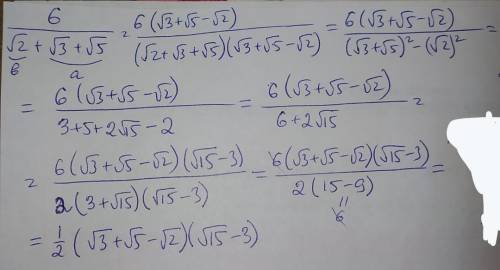 6 / (√2 + √3 + √5) = 6(√3+√5−√2) / ((√2+√3+√5)(√3+√5−√2)) = 6(√3+√5−√2) / ((√3+√5)² − (√2)²) =
в a
= 6(√3+√5−√2) / (3+5+2√15−2) = 6(√3+√5−√2) / (6+2√15) =
= 6(√3+√5−√2)(√15−3) / (2(3+√15)(√15−3)) = 6(√3+√5−√2)(√15−3) / (2(15−9)) =
" 6
= 1/2 (√3+√5−√2)(√15−3)